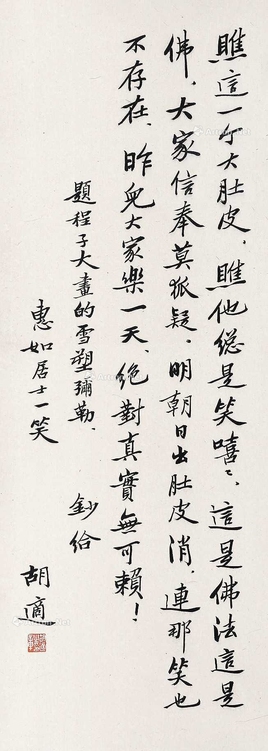 瞧這一个大肚皮，瞧他總是笑嘻〻，這是佛法這是
佛，大家信奉莫狐疑，明朝日出肚皮消，連那笑也
不存在，昨兒大家樂一天，絕對真實無可賴！
題程子大畫的雪塑彌勒、
鈔給
惠如居士一笑
胡適